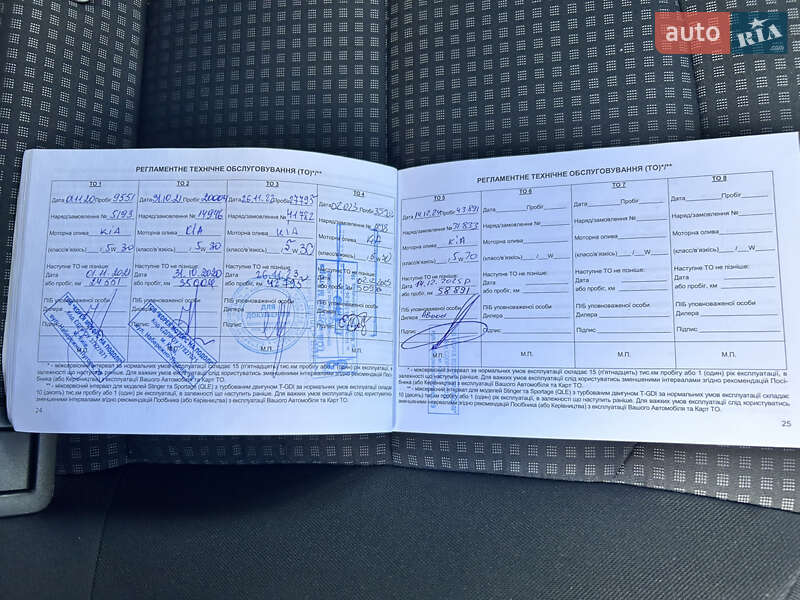 auto RIA .com
РЕГЛАМЕНТНЕ ТЕХНІЧНЕ ОБСЛУГОВУВАННЯ (ТО)*/**
ТО 1 ТО 2 ТО 3 ТО 4
Дата 01.11.20 Пробіг 9551 Дата 31.10.21 Пробіг 20004 Дата 26.11.22 Пробіг 27795
Наряд/замовлення № 5193 Наряд/замовлення № 14996 Наряд/замовлення № 41782 Наряд/замовлення №
Моторна олива KIA Моторна олива KIA Моторна олива KIA Моторна олива KIA
(класс/в'язкість) , 5 W 30 (класс/в'язкість) , 5 W 30 (класс/в'язкість) 5 W 30 (класс/в'язкість) , 5 W 30
Наступне ТО не пізніше Наступне ТО не пізніше Наступне ТО не пізніше Наступне ТО не пізніше
Дата 01.11.2021 Дата 31.10.2020 Дата 26.11.23 Дата
або пробіг, км 24 551 або пробіг, км 35004 або пробіг, км 42795 або пробіг, км
ПІБ уповноваженої особи
Дилера
Підпис
М.П. М.П.
* - міжсервісний інтервал за нормальних умов експлуатації складає 15 (п'ятнадцять) тис.км пробігу або 1 (один) рік експлуатації, в
залежності що наступить раніше. Для важких умов експлуатації слід користуватись зменшеними інтервалами згідно рекомендацій Посі-
бника (або Керівництва) з експлуатації Вашого Автомобіля та Карт ТО.
** - міжсервісний інтервал для моделей Stinger та Sportage (QLE) з турбованим двигуном T-GDI за нормальних умов експлуатації складає
10 (десять) тис.км пробігу або 1 (один) рік експлуатації, в залежності що наступить раніше. Для важких умов експлуатації слід користуватись
зменшеними інтервалами згідно рекомендацій Посібника (або Керівництва) з експлуатації Вашого Автомобіля та Карт ТО.
24
РЕГЛАМЕНТНЕ ТЕХНІЧНЕ ОБСЛУГОВУВАННЯ (ТО)*/**
ТО 5 ТО 6 ТО 7 ТО 8
Дата 14.12.24 Пробіг 43891 Дата Пробіг Дата Пробіг Дата Пробіг
Наряд/замовлення № 71833 Наряд/замовлення № Наряд/замовлення № Наряд/замовлення №
Моторна олива KIA Моторна олива Моторна олива Моторна олива
(класс/в'язкість) , 5 W 20 (класс/в'язкість) / W (класс/в'язкість) / W (класс/в'язкість) / W
Наступне ТО не пізніше Наступне ТО не пізніше Наступне ТО не пізніше Наступне ТО не пізніше
Дата 14.12.2025р Дата Дата Дата
або пробіг, км 58 891 або пробіг, км або пробіг, км або пробіг, км
ПІБ уповноваженої особи ПІБ уповноваженої особи ПІБ уповноваженої особи ПІБ уповноваженої особи
Дилера Дилера Дилера Дилера
Підпис Підпис Підпис Підпис
М.П. М.П. М.П. М.П.
* - міжсервісний інтервал за нормальних умов експлуатації складає 15 (п'ятнадцять) тис.км пробігу або 1 (один) рік експлуатації, в
залежності що наступить раніше. Для важких умов експлуатації слід користуватись зменшеними інтервалами згідно рекомендацій Посі-
бника (або Керівництва) з експлуатації Вашого Автомобіля та Карт ТО.
** - міжсервісний інтервал для моделей Stinger та Sportage (QLE) з турбованим двигуном T-GDI за нормальних умов експлуатації складає
10 (десять) тис.км пробігу або 1 (один) рік експлуатації, в залежності що наступить раніше. Для важких умов експлуатації слід користуватись
зменшеними інтервалами згідно рекомендацій Посібника (або Керівництва) з експлуатації Вашого Автомобіля та Карт ТО.
25